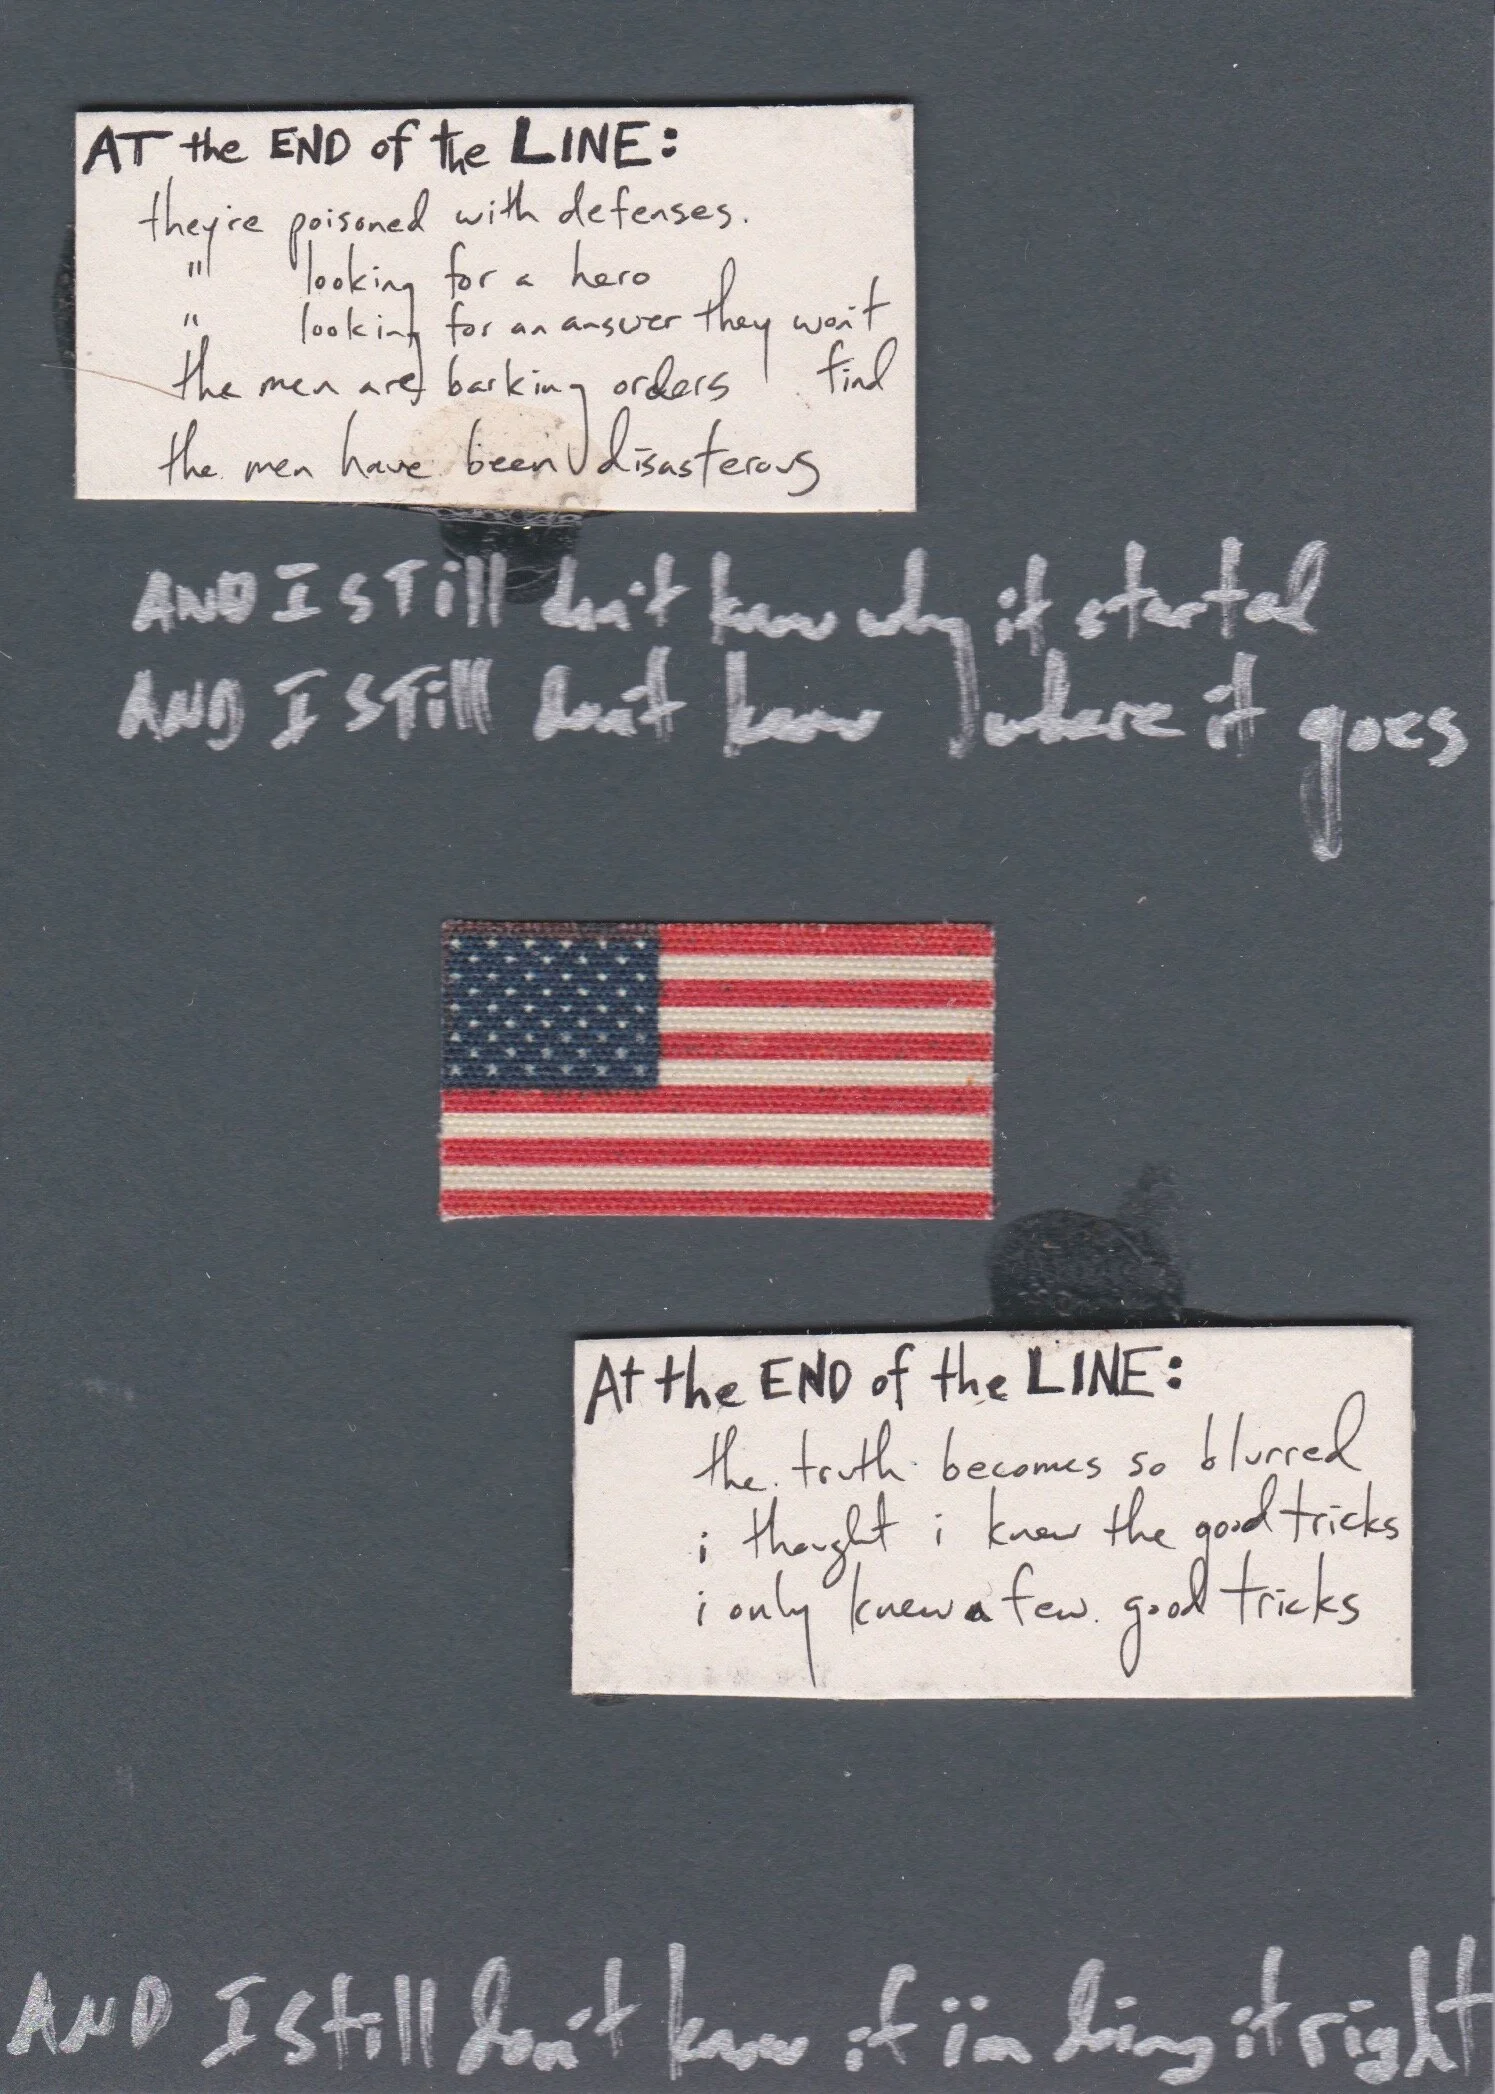 AT the END of the LINE:
they're poisoned with defenses.
" looking for a hero
" looking for an answer they won't
find
the men are barking orders
the men have been disasterous
AND I STill don't know why it started
AND I STill don't know where it goes
At the END of the LINE:
the truth becomes so blurred
i thought i knew the good tricks
i only knew a few good tricks
AND I Still don't know if i'm doing it right